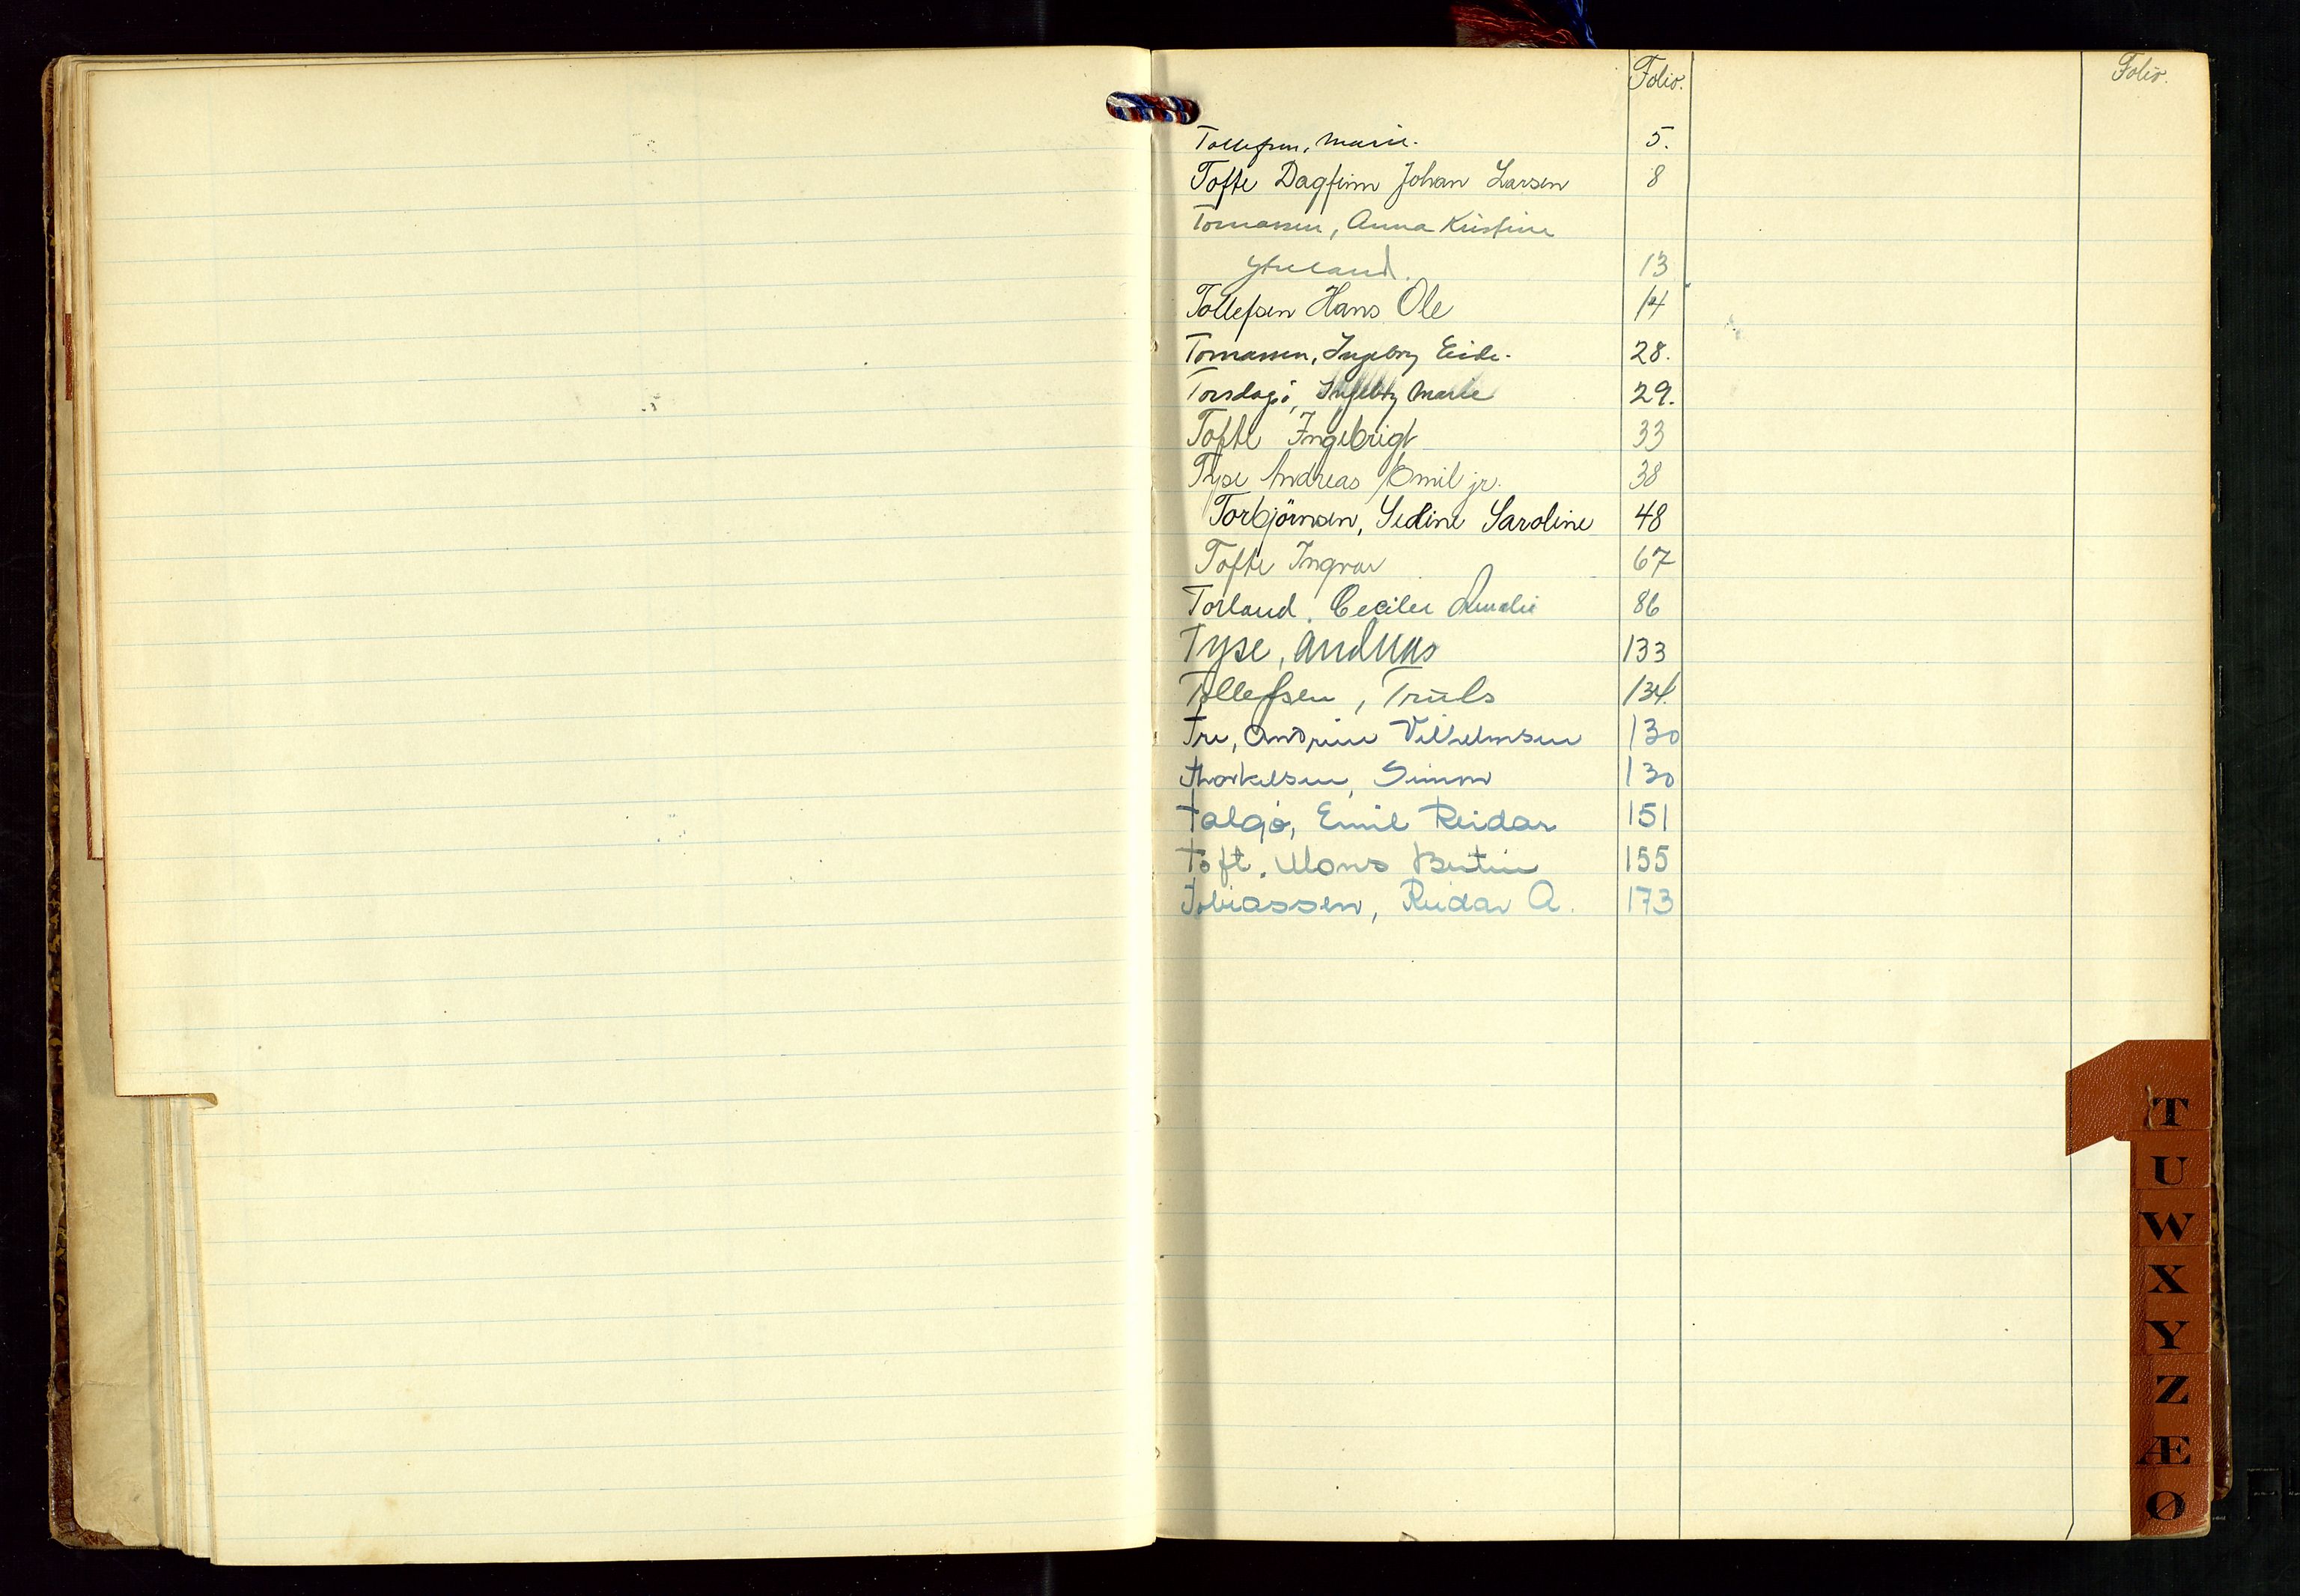 Folio. Folio.
Tollefsen, Marie. 5.
Tofte Dagfinn Johan Larsen 8
Tomassen, Anna Kristine
13
Tollefsen Hans Ole 14
Tomassen, Ingeborg Eide. 28.
Ingeborg Marie 29.
Tofte Ingebrigt 33
Tyse Andreas Emil jr. 38
Torbjörnsen, Sedine Saroline 48
Tofte Ingvar 67
Torland, Cecilie Amalie 86
Tyse, Andreas 133
Tollefsen, Truls 134.
Tre, Andrine Vilhelmsen 130
Thorkelsen, Simon 130
Talgø, Emil Reidar 151
Toft, Mons Bertin 155
Tobiassen, Reidar A. 173
T
U
W
X
Y
Z
Æ
Ø